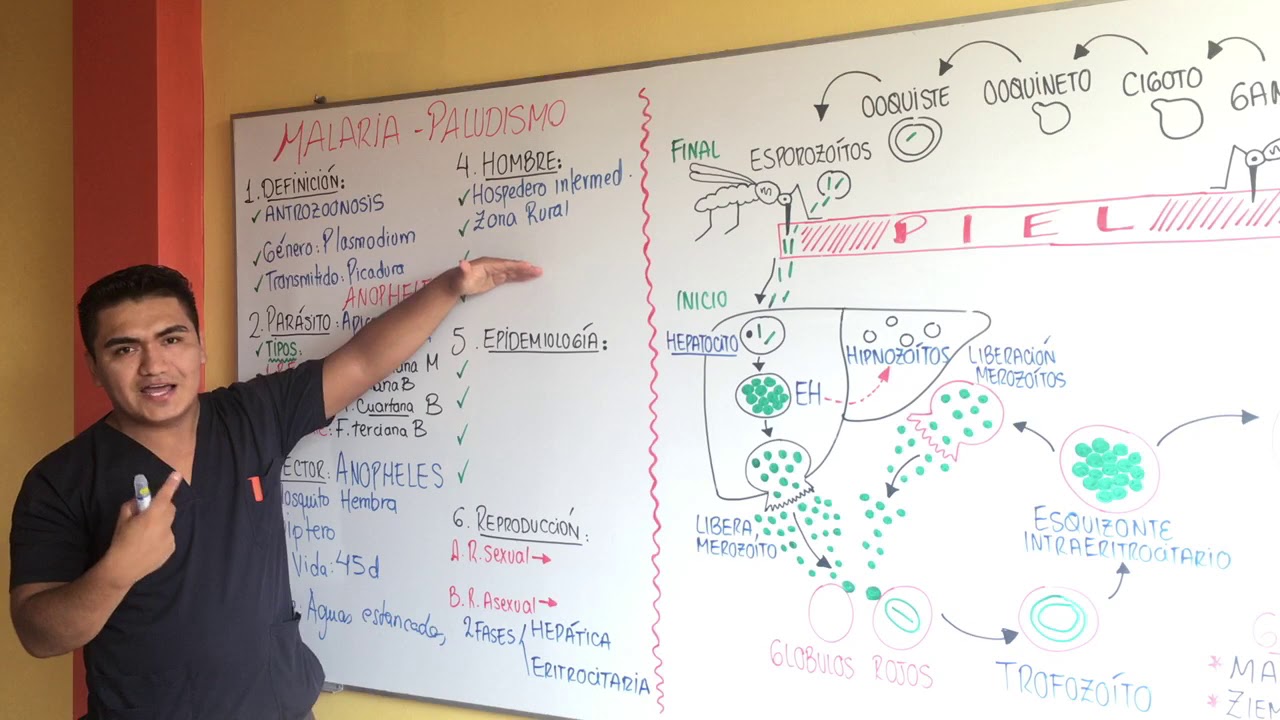 MALARIA - PALUDISMO
1. DEFINICIÓN:
✓ ANTROZOONOSIS
✓ Género: Plasmodium
✓ Transmitido: Picadura
ANOPHEL
2. PARÁSITO:
✓ TIPOS:
M
B
Cuartana B
F. terciana B
ANOPHELES
Hembra
Vida: 45d
Aguas estancadas
4. HOMBRE:
✓ Hospedero intermed.
✓ Zona Rural
✓
✓
5. EPIDEMIOLOGÍA:
✓
✓
✓
✓
6. REPRODUCCIÓN:
A. R. Sexual →
B. R. Asexual →
2 FASES HEPÁTICA
ERITROCITARIA
OOQUISTE
OOQUINETO
CIGOTO
GAM
FINAL
ESPOROZOÍTOS
PIEL
INICIO
HEPATOCITO
HIPNOZOÍTOS
LIBERACIÓN
MEROZOÍTOS
EH
LIBERA
MEROZOÍTO
ESQUIZONTE
INTRAERITROCITARIO
GLOBULOS ROJOS
TROFOZOÍTO
G
* MA
* ZIEM